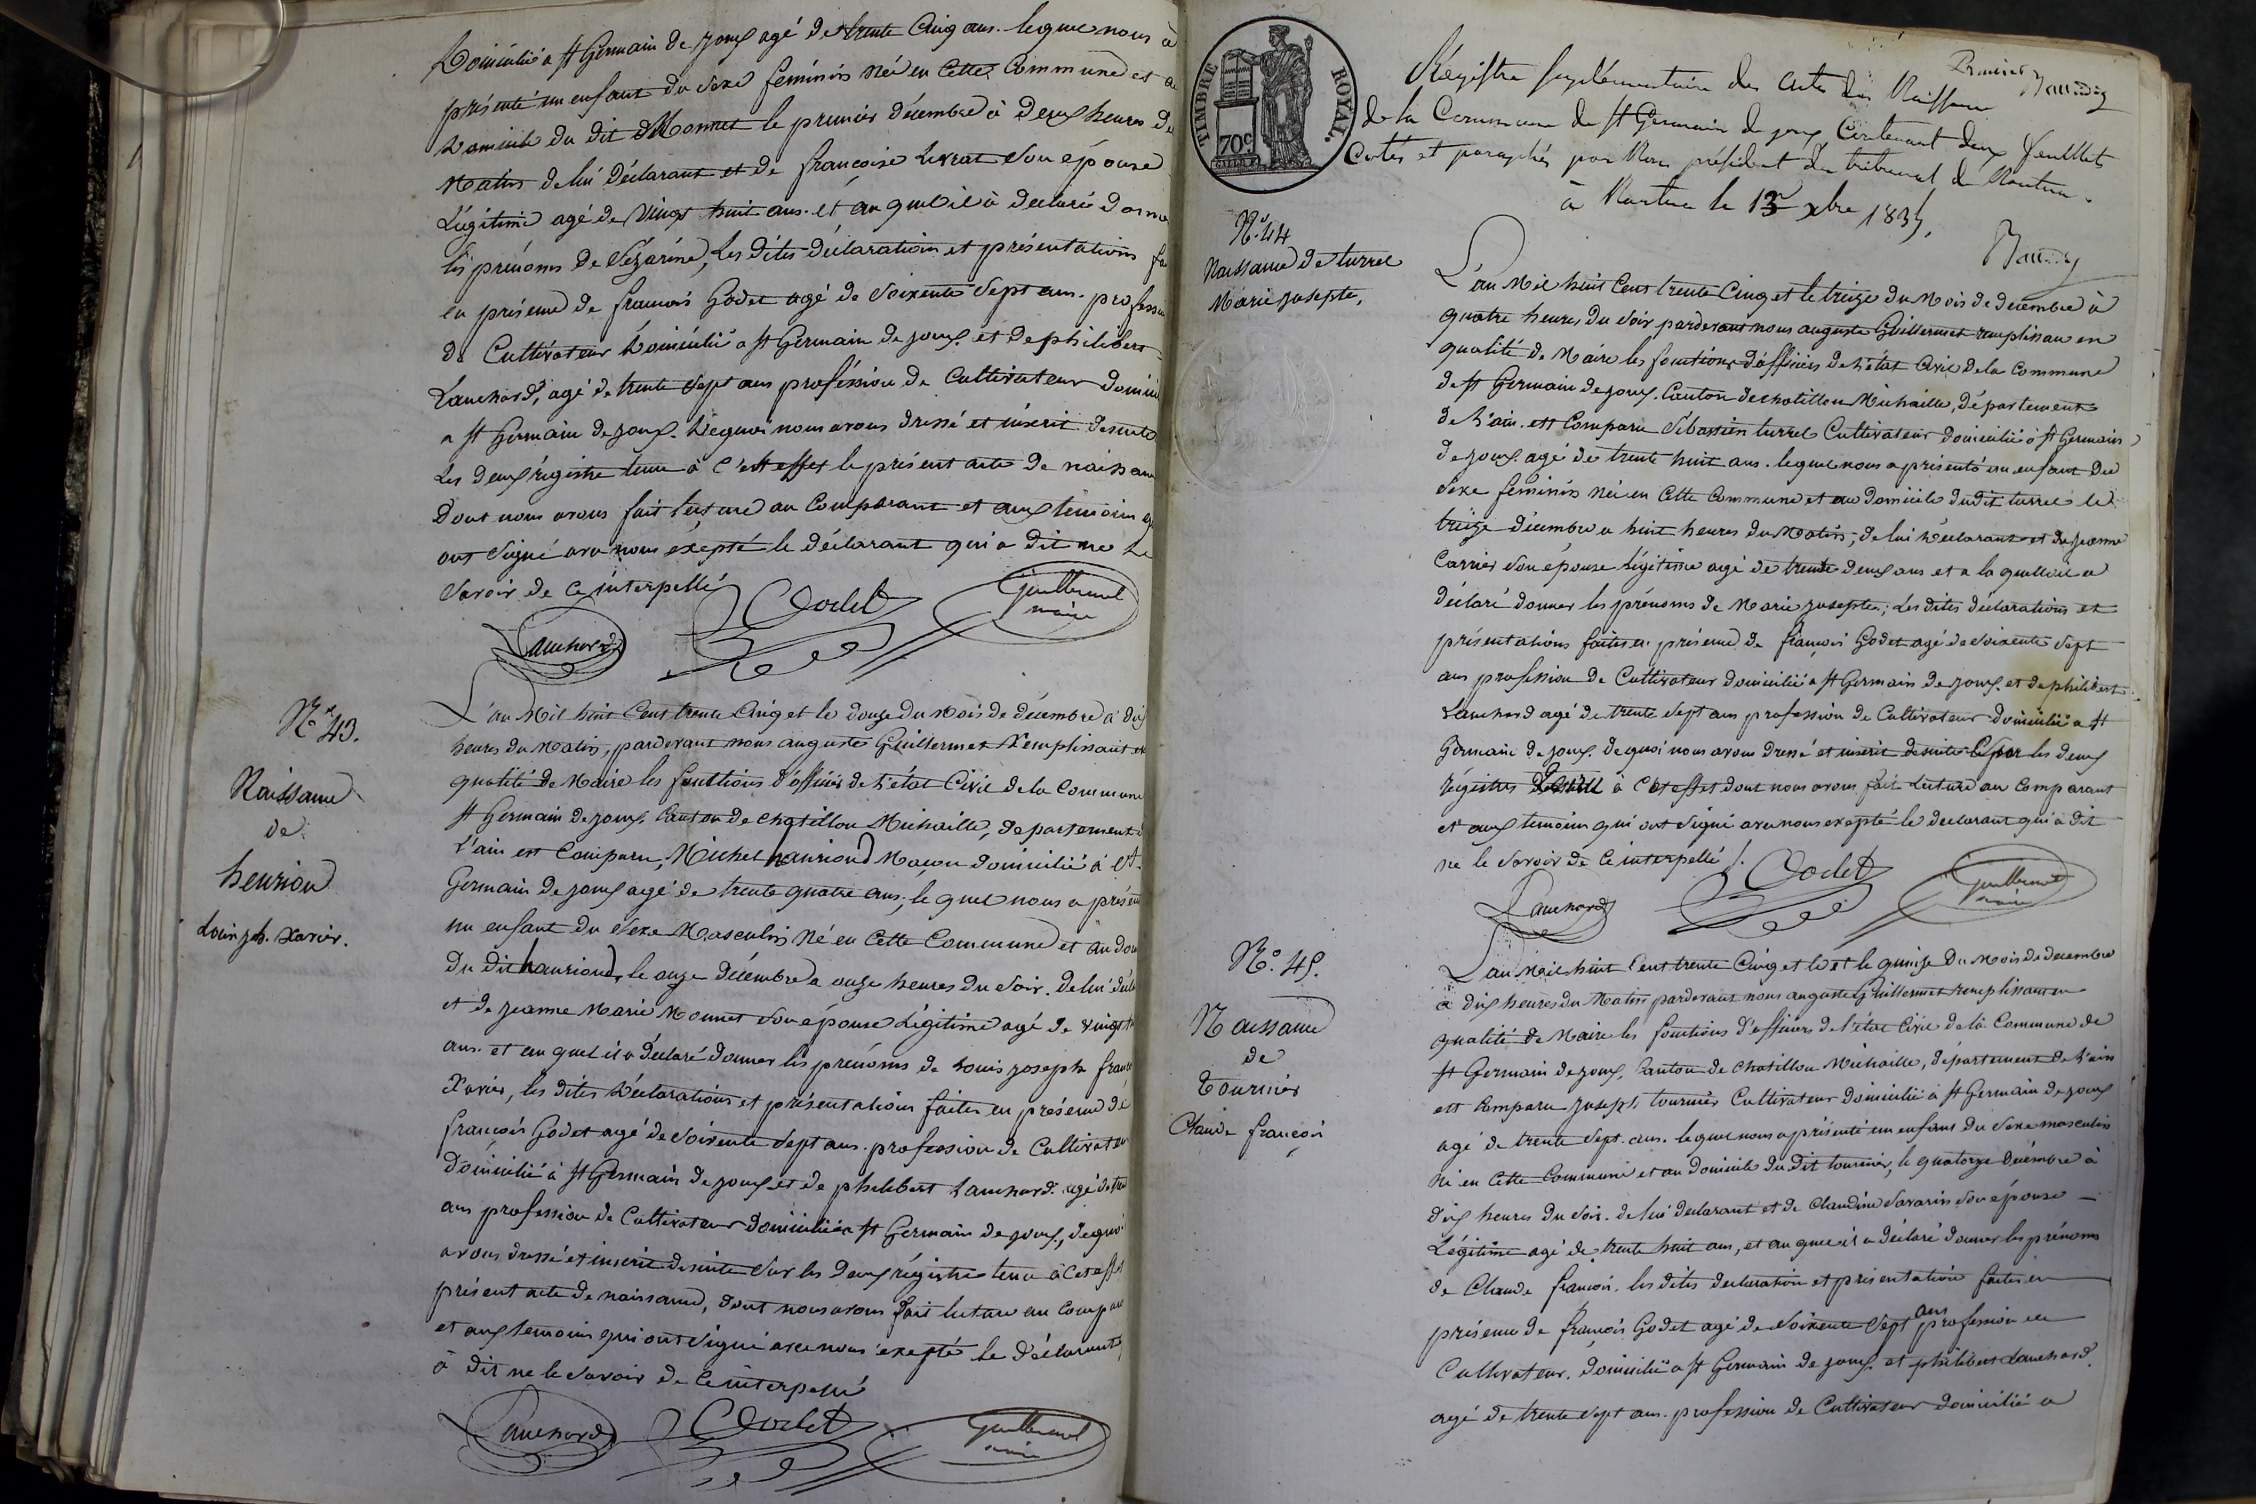 Domicilié a St Germain de joux agé de trente Cinq ans. lequel nous à
présenté un enfant du sexe feminin Né en Cette Commune et au
domicile du dit Monnet le premier décembre à deux heures du
Matin de lui déclarant et de françoise Livrat son épouse
Légitime agé de vingt huit ans. et au quel il à declaré donner
les prénoms de Sézarine, Les dites déclarations et présentations
en présence de françois Godet agé de soixente sept ans. profession
de Cultivateur domicilié a St Germain de joux. et de philibert
Lanchard, agé de trente sept ans proféssion de Cultivateur domicilié
a St Germain de joux. de quoi nous avons dressé et inscrit desuite
Les deux régistre tenu à C'est effet le présent acte de naissance
Dont nous avons fait lecture au Comparant et aux temoins qui
ont signé avec nous éxepté le déclarant qui a dit ne le
savoir de ce interpellé
Lanchard Godet Guillermet
maire
No 43.
Naissance
de
henriond
Louis jph. Xavier.
L'an Mil huit Cent trente Cinq et le douze du Mois de décembre à dix
heures du Matin, pardevant nous auguste Guillermet Remplissant en
qualité de Maire les fonctions d'officier de l'état Civil de la Commune
St Germain de joux, Canton de Chatillon Michaille, département de
l'ain est Comparu, Michel hanriond Maçon domicilié à St.
Germain de joux agé de trente quatre ans, le quel nous a présenté
un enfant du sexe Masculin Né en Cette Commune et au
du dit hanriond, le onze décembre a onze heures du soir. de lui
et de jeanne Marie Monnet son épouse Légitime agé de vingt
ans. et au quel il a déclaré donner les prénoms de Louis joseph
Xavier, les dites déclarations et présentations faites en présence de
françois Godet agé de soixente sept ans. profession de Cultivateur
domicilié à St Germain de joux et de philibert Lanchard. agé de
ans profession de Cultivateur domicilié a St Germain de joux, de quoi
avons dressé et inscrit desuite sur les deux régistre tenu à Cet effet
présent acte de naissance, dont nous avons fait lecture au
et aux temoins qui ont signé avec nous exepté le déclarant
à dit ne le savoir de ce interpellé
Lanchard Godet Guillermet
maire
TIMBRE ROYAL.
70c.
Premier
Régistre supplémentaire des actes de Naissance
de la Commune de St Germain de joux Contenant deux feuillets
Cotés et paraphés par Nous président du tribunal de Nantua.
à Nantua le 13 xbre 1835.
No. 44
Naissance de turrel
Marie josepte,
L'an Mil huit Cent trente Cinq et le treize du Mois de decembre à
quatre heures du soir pardevant nous auguste Guillermet remplissan en
qualité de Maire les fonctions d'officier de l'état Civil de la Commune
de St Germain de joux. Canton de chatillon Michaille, département
de l'ain. est Comparu Sébastien turrel Cultivateur domicilié à St Germain
de joux. agé de trente huit ans. lequel nous a présenté un enfant du
sexe féminin Né en Cette Commune et au domicile du dit turrel le
treize décembre a huit heures du Matin, de lui déclarant et de jeanne
Carrier son épouse Légitime agé de trente deux ans et a la quelle il a
déclaré donner les prénoms de Marie josepte, Les dites déclarations et
présentations faites en présence de françois Godet agé de soixente sept
ans profession de Cultivateur domicilié a St Germain de joux. et de philibert
Lanchard agé de trente sept ans profession de Cultivateur domicilié a St
Germain de joux. de quoi nous avons dressé et inscrit desuite sur les deux
régistres à C'est effet dont nous avons fait Lecture au Comparant
et aux temoins qui ont signé avec nous exepté le declarant qui à dit
ne le savoir de Ce interpellé /.
Lanchard Godet Guillermet
maire
No. 45.
Naissance
de
Tournier
Claude françois
L'an Mil huit Cent trente Cinq et le et le quinze du Mois de decembre
a dix heures du Matin pardevant nous auguste Guillermet remplissant en
qualité de Maire les fonctions d'officiers de l'état Civil de la Commune de
St Germain de joux, Canton de Chatillon Michaille, département de l'ain
est Comparu joseph tournier Cultivateur domicilié à St Germain de joux
agé de trente sept. ans. lequel nous a présenté un enfant du sexe masculin
Né en Cette Commune et au domicile du dit tournier, le quatorze décembre à
dix heures du soir. de lui declarant et de Claudine Savarin son épouse
Légitime agé de trente huit ans, et au quel il a déclaré donner les prénoms
de Claude françois. les dites declaration et présentation faites en
présence de françois Godet agé de soixente sept ans profession de
Cultivateur. domicilié a St Germain de joux. et philibert Lanchard.
agé de trente sept ans. profession de Cultivateur domicilié a